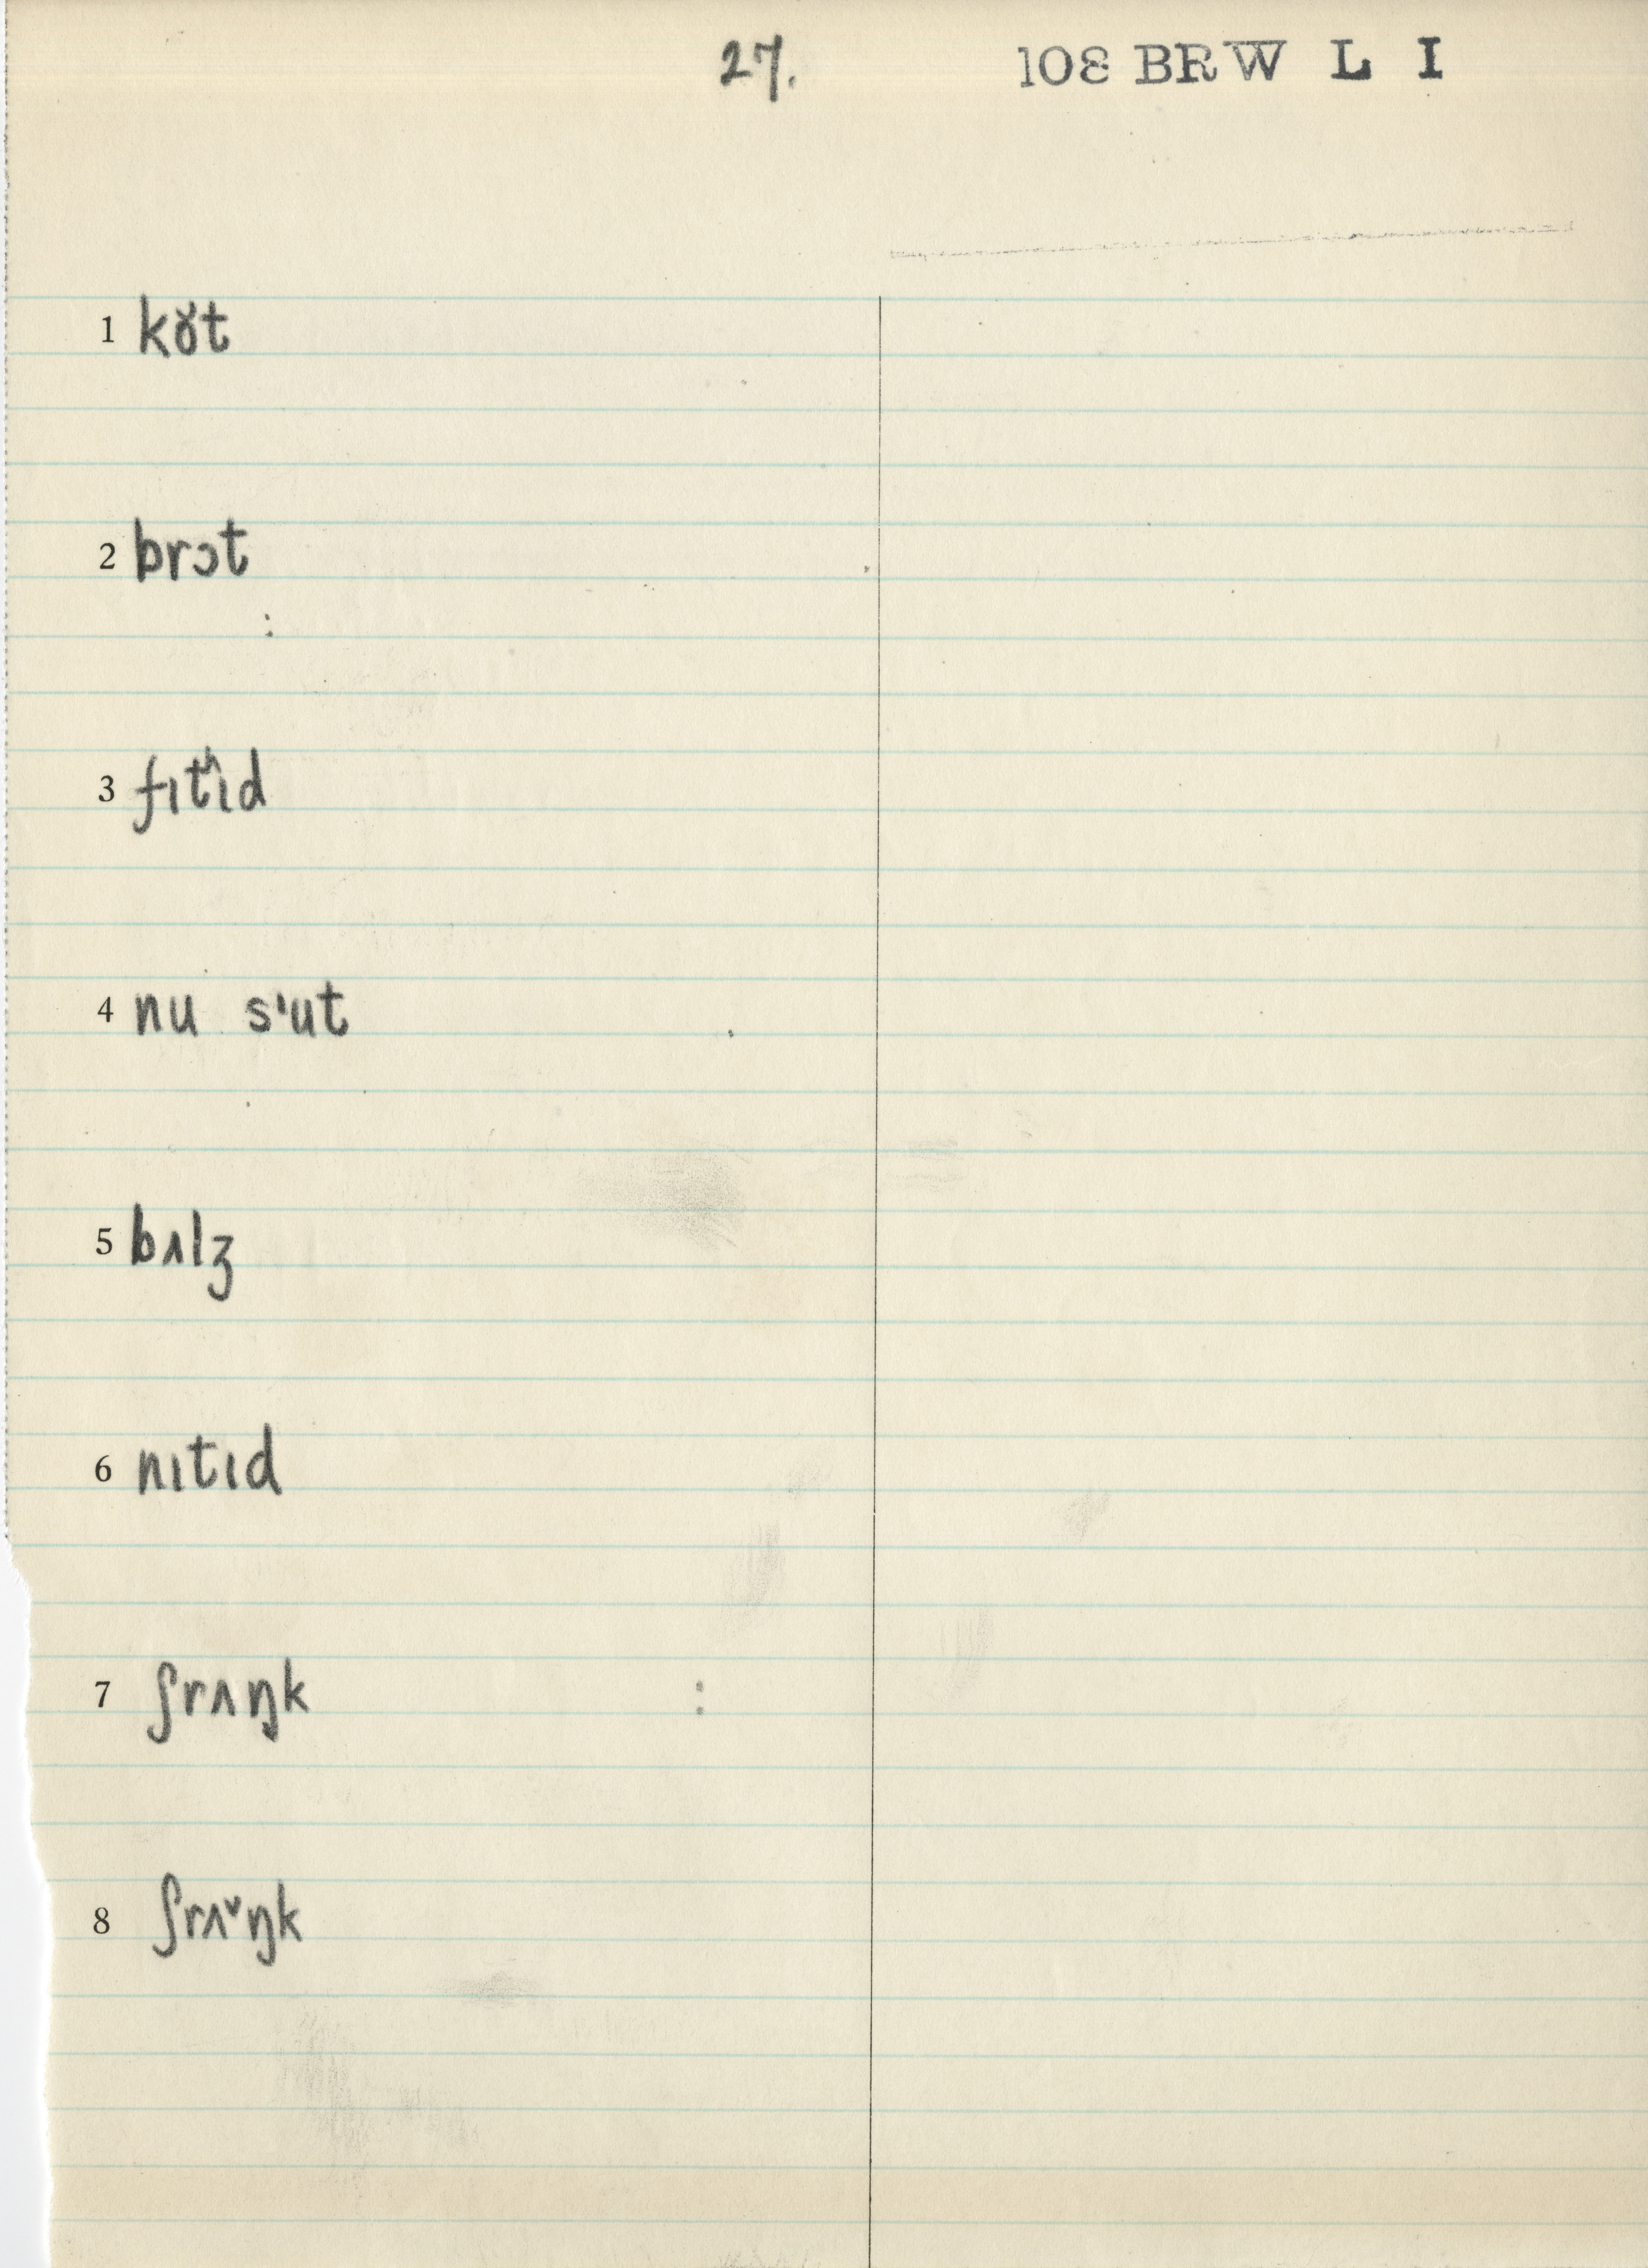 27.
108 BRW L I
1 kɤt
2 brɔt
:
3 fɪtʰɪd
4 nu sˈut
5 bʌlʒ
6 nɪtɪd
7 ʃrʌŋk :
8 ʃrʌ˅ŋk